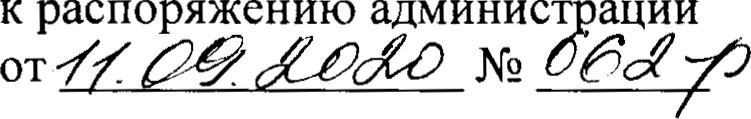 к распоряжению администрации
от 11.09.2020 № 062-р